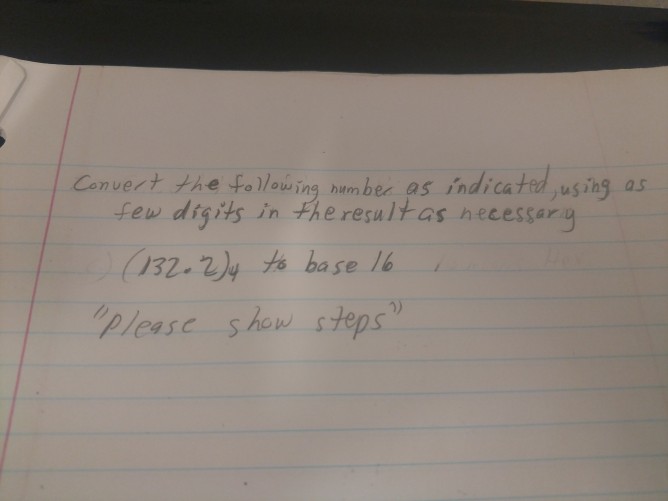 Convert the following number as indicated, using as
few digits in the result as necessary
(132.2)4 to base 16
"Please show steps"